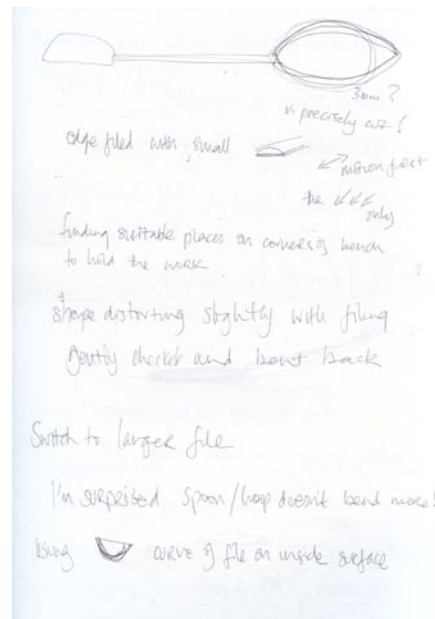 3mm ?
v. precisely cut !
edge filed with small
motion first
the
only
finding suitable places on corners of bench
to hold the work
shape distorting slightly with filing
Gently checked and bent back
Switch to larger file
I'm surprised spoon/hoop doesn't bend more!
Using curve of file on inside surface